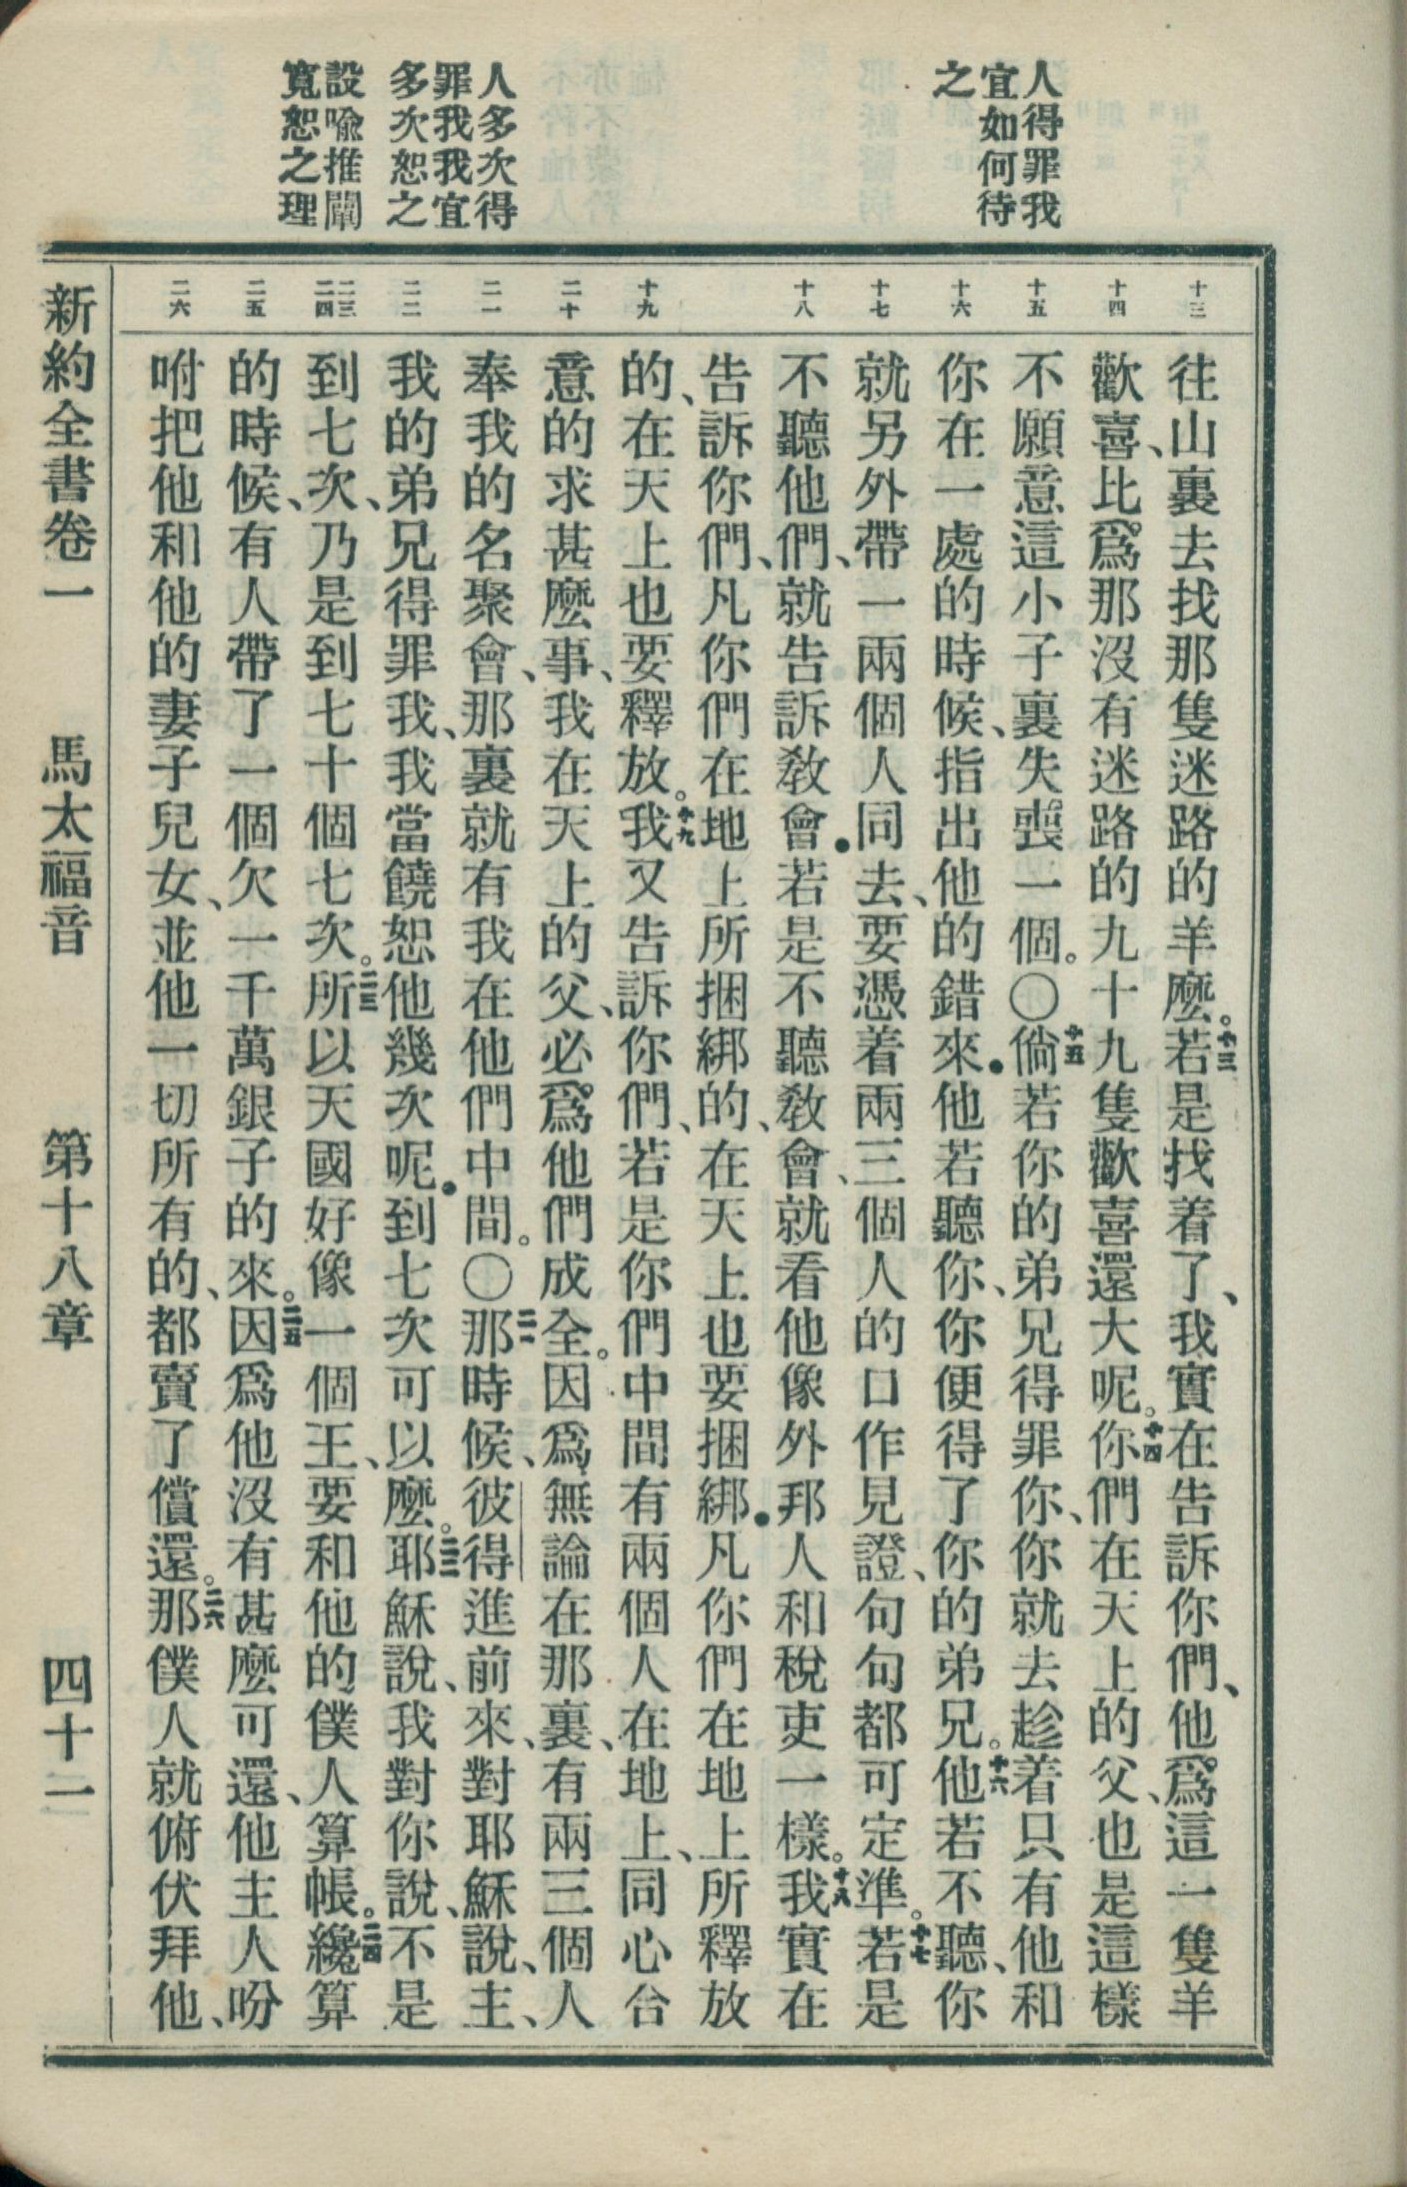 人得罪我
宜如何待
之
人多次得
罪我我宜
多次恕之
設喩推闡
寬恕之理
十三
十四
十五
十六
十七
十八
十九
二十
二一
二二
二三
二四
二五
二六
往山裏去找那隻迷路的羊麽。十三若是找着了、我實在告訴你們、他爲這一隻羊
歡喜、比爲那沒有迷路的九十九隻歡喜還大呢。十四你們在天上的父、也是這樣
不願意這小子裏失喪一個。〇十五倘若你的弟兄得罪你、你就去趁着只有他和
你在一處的時候、指出他的錯來●他若聽你、你便得了你的弟兄。十六他若不聽、你
就另外帶一兩個人同去、要憑着兩三個人的口作見證、句句都可定準。十七若是
不聽他們、就告訴敎會●若是不聽敎會、就看他像外邦人和稅吏一樣。十八我實在
告訴你們、凡你們在地上所捆綁的、在天上也要捆綁●凡你們在地上所釋放
的、在天上也要釋放。十九我又告訴你們、若是你們中間有兩個人在地上、同心合
意的求甚麽事、我在天上的父、必爲他們成全。因爲無論在那裏、有兩三個人
奉我的名聚會、那裏就有我在他們中間。〇二一那時候、彼得進前來、對耶穌說、主、
我的弟兄得罪我、我當饒恕他幾次呢●到七次可以麽。二二耶穌說、我對你說、不是
到七次、乃是到七十個七次。二三所以天國好像一個王、要和他的僕人算帳。二四纔算
的時候、有人帶了一個欠一千萬銀子的來。二五因爲他沒有甚麽可還、他主人吩
咐把他和他的妻子兒女、並他一切所有的、都賣了償還。二六那僕人就俯伏拜他、
新約全書卷一　馬太福音　第十八章　四十一